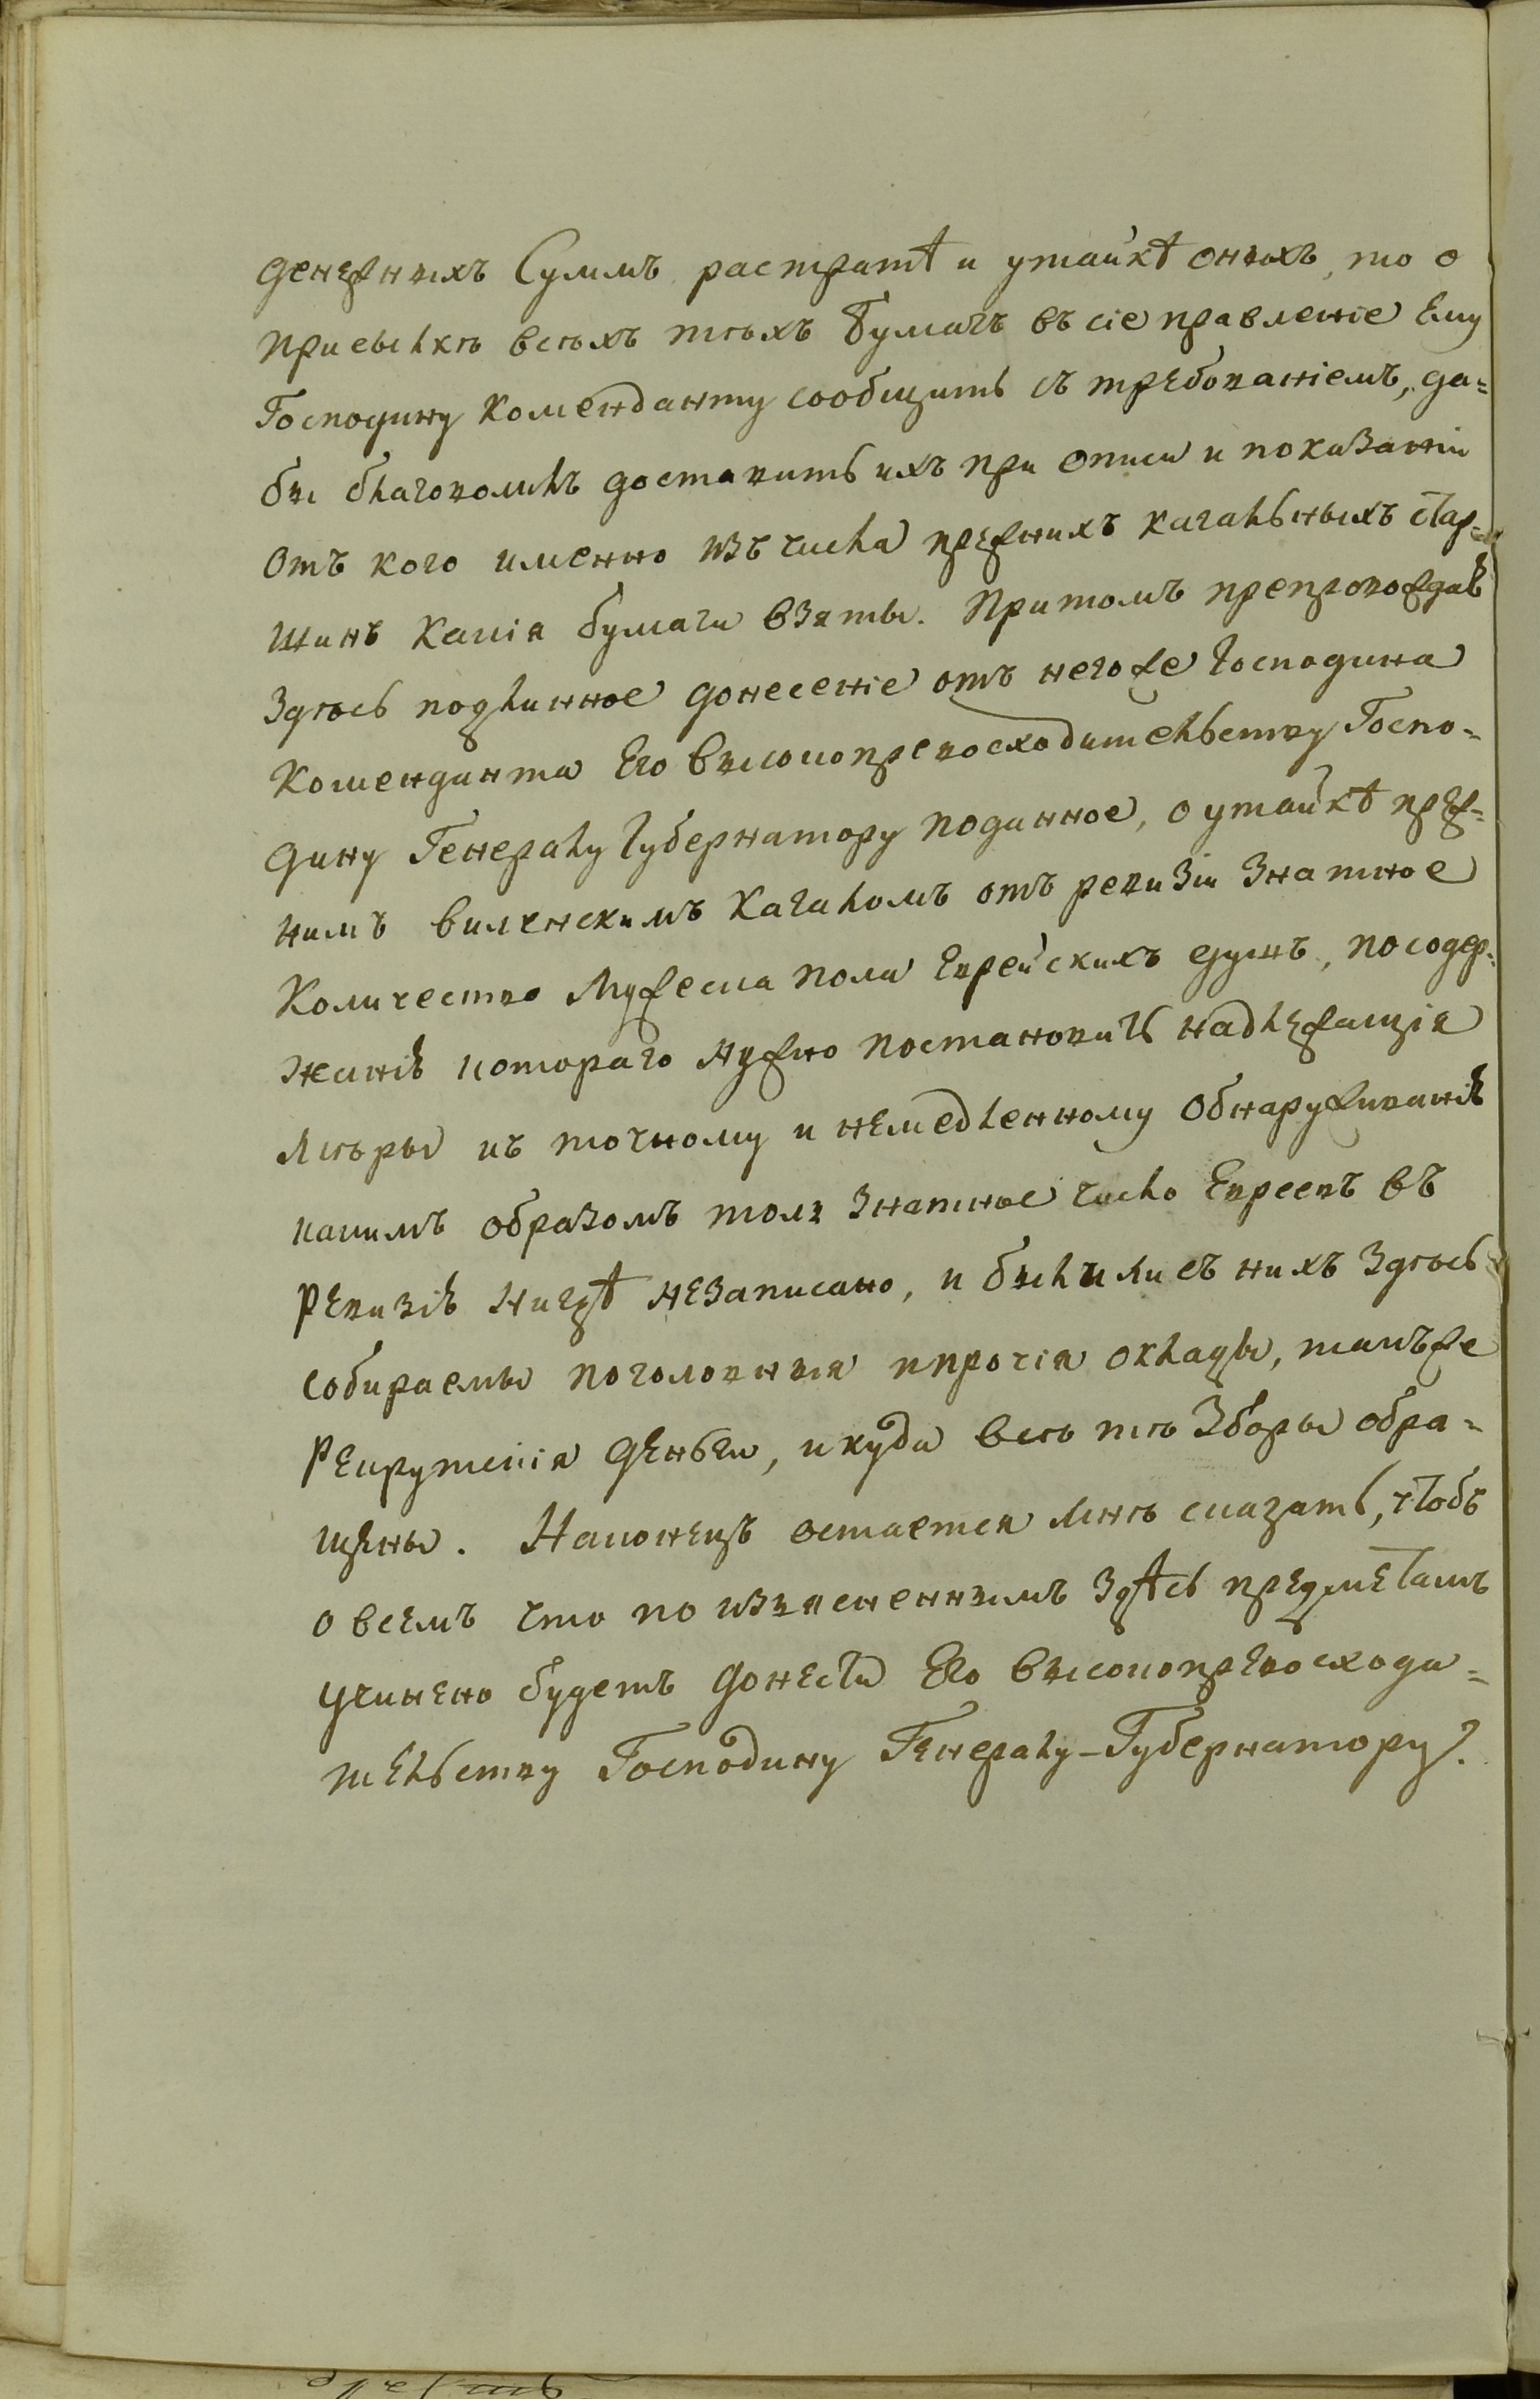 денежныхъ Суммъ растратѣ и утайкѣ оныхъ, то о
присылкѣ всѣхъ тѣхъ бумагъ въ сіе правленіе Ему
Господину Коменданту сообщить съ требованіемъ, да=
бы благоволилъ доставить ихъ при описи и показаніи
отъ кого именно изъ числа прежнихъ кагальныхъ стар=
шинъ какія бумаги взяты. Притомъ препровождаѣ
здѣсь подлинное донесеніе отъ негоже Господина
Коменданта Его высокопревосходительству Госпо=
дину Генералу Губернатору поданное, о утайкѣ преж=
нимъ виленскимъ Кагаломъ отъ ревизіи знатное
Количество Мужеска пола Еврейскихъ душъ, по содер=
жаніѣ котораго нужно постановить надлежащія
мѣры къ точному и немедленному обнаруживаніѣ
какимъ образомъ толь знатное число Евреевъ въ
Ревизіѣ нигдѣ незаписано, и были ли съ нихъ здѣсь
собираемы поголовныя ипрочія оклады, такъже
Рекрутскія деньги, икуда всѣ тѣ Зборы обра=
щены. Наконецъ остается мнѣ сказать, чтобъ
о всемъ что по изъясненнымъ здѣсь предметамъ
учинено будетъ донести Его высокопревосходи=
тельству Господину Генералу-Губернатору.